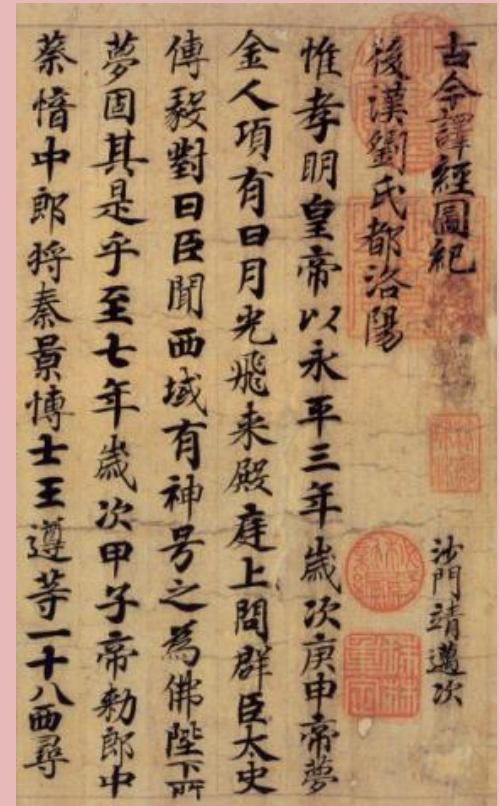 古今譯經圖紀
沙門靖邁次
後漢劉氏都洛陽
惟孝明皇帝以永平三年歲次庚申帝夢
金人項有日月光飛来殿庭上問群臣太史
傅毅對曰臣聞西域有神号之為佛陛下所
夢固其是乎至七年歲次甲子帝勑郎中
蔡愔中郎将秦景博士王遵等一十八西尋